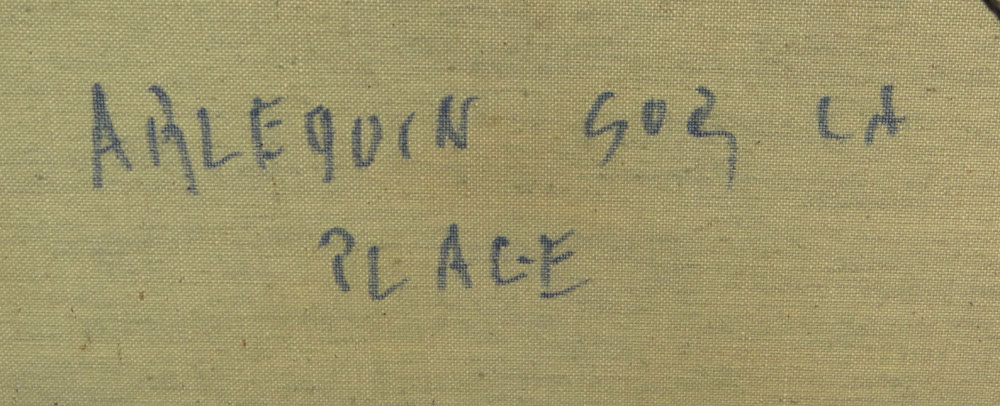 ARLEQUIN SUR LA
PLAGE